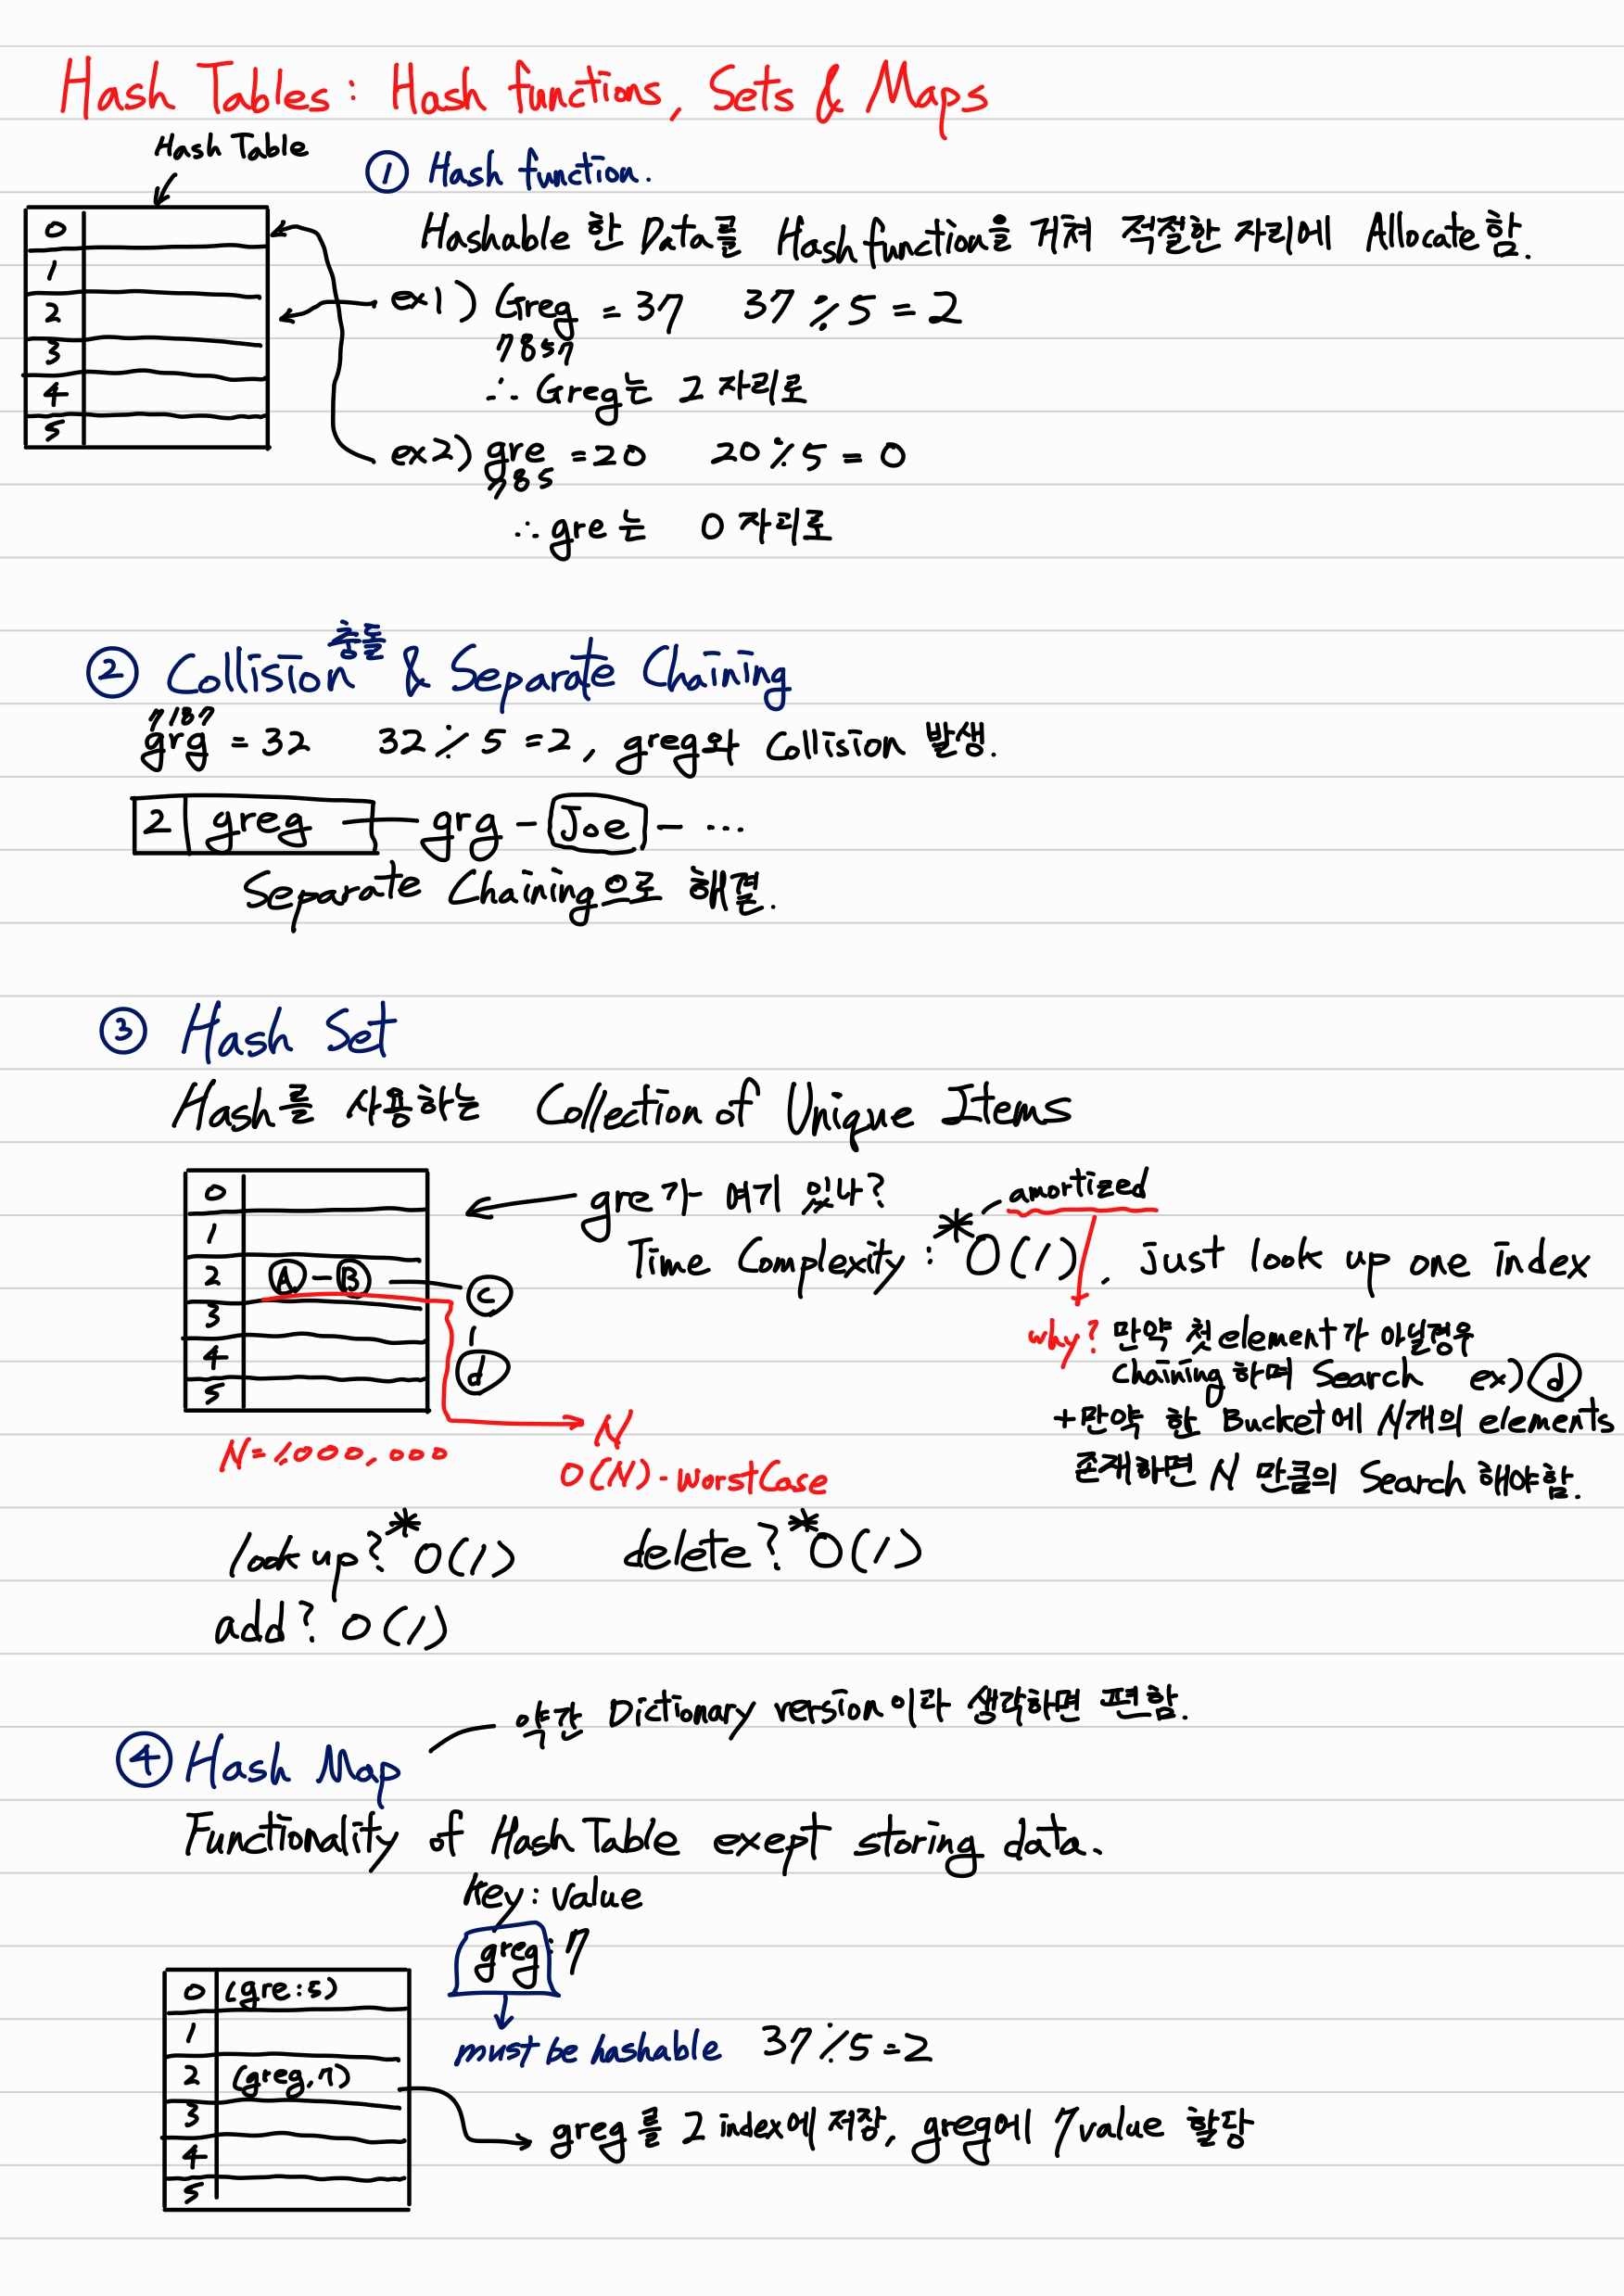 Hash Tables : Hash functions, Sets & Maps
Hash Table
① Hash function.
Hashable 한 Data를 Hash function을 거쳐 적절한 자리에 Allocate 함.
0
1
2
3
4
5
ex1) Greg = 37 37 % 5 = 2
7857
∴ Greg는 2 자리로
ex2) gre = 20 20 % 5 = 0
785
∴ gre 는 0 자리로
충돌
② Collision & Separate Chaining
7187
grg = 32 32 % 5 = 2, greg와 Collision 발생.
2 greg - grg - Joe - ...
Separate Chaining으로 해결.
③ Hash Set
Hash를 사용하는 Collection of Unique Items
0
1
2 A - B
3
4
5
C
d
gre가 여기 있나?
amortized
Time Complexity : *O(1), just look up one index
why? 만약 첫 element가 아닐경우
Chaining 하며 Search ex) d
+ 만약 한 Bucket에 N개의 elements
존재하면 N 만큼의 Search 해야함.
N = 1.000.000
N
O(N) - worst Case
look up? *O(1) delete? *O(1)
add? O(1)
약간 Dictionary version이라 생각하면 편함.
④ Hash Map
Functionality of Hash Table exept storing data.
Key : value
greg : 7
must be hashable 37 % 5 = 2
0 (gre : 5)
1
2 (greg, 7)
3
4
5
greg 를 2 index에 저장, greg에 7 value 할당